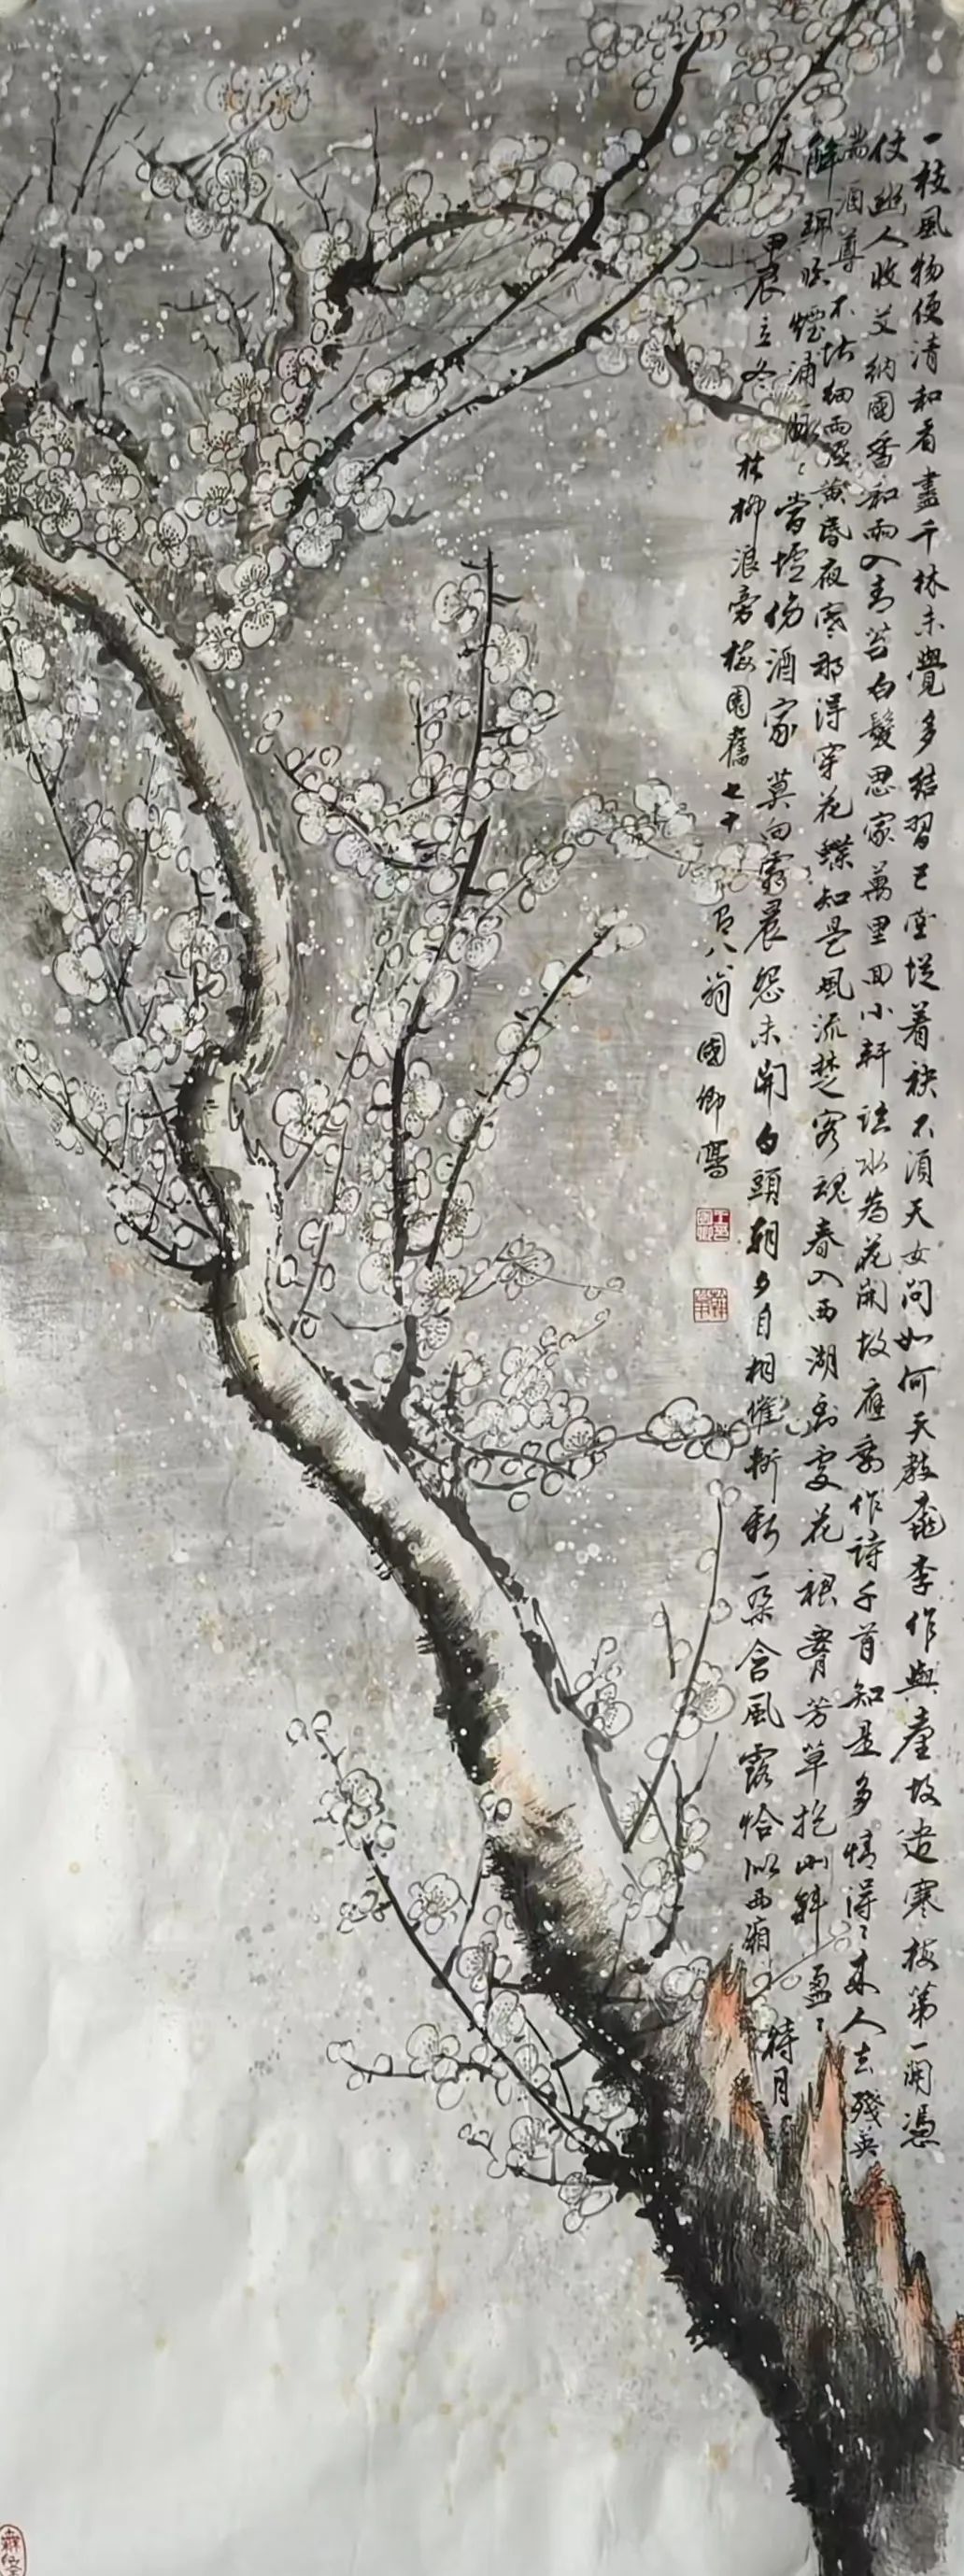 一枝風物便清和看盡千林未覺多結習已空從着袂不須天女問如何天教桃李作輿臺故遣寒梅第一開憑
仗幽人收艾納國香和雨入青苔白髮思家萬里回小軒臨水為花開故應剩作詩千首知是多情得得來人去殘英
滿酒尊不堪細雨濕黃昏夜寒那得穿花蝶知是風流楚客魂春入西湖到處花裙腰芳草抱山斜盈盈
解珮臨煙浦脈脈當壚傍酒家莫向霜晨怨未開白頭朝夕自相催斬新一朵含風露恰似西廂待月
來 甲辰立冬
於柳浪旁梅園舊七十
有八翁國卿寫